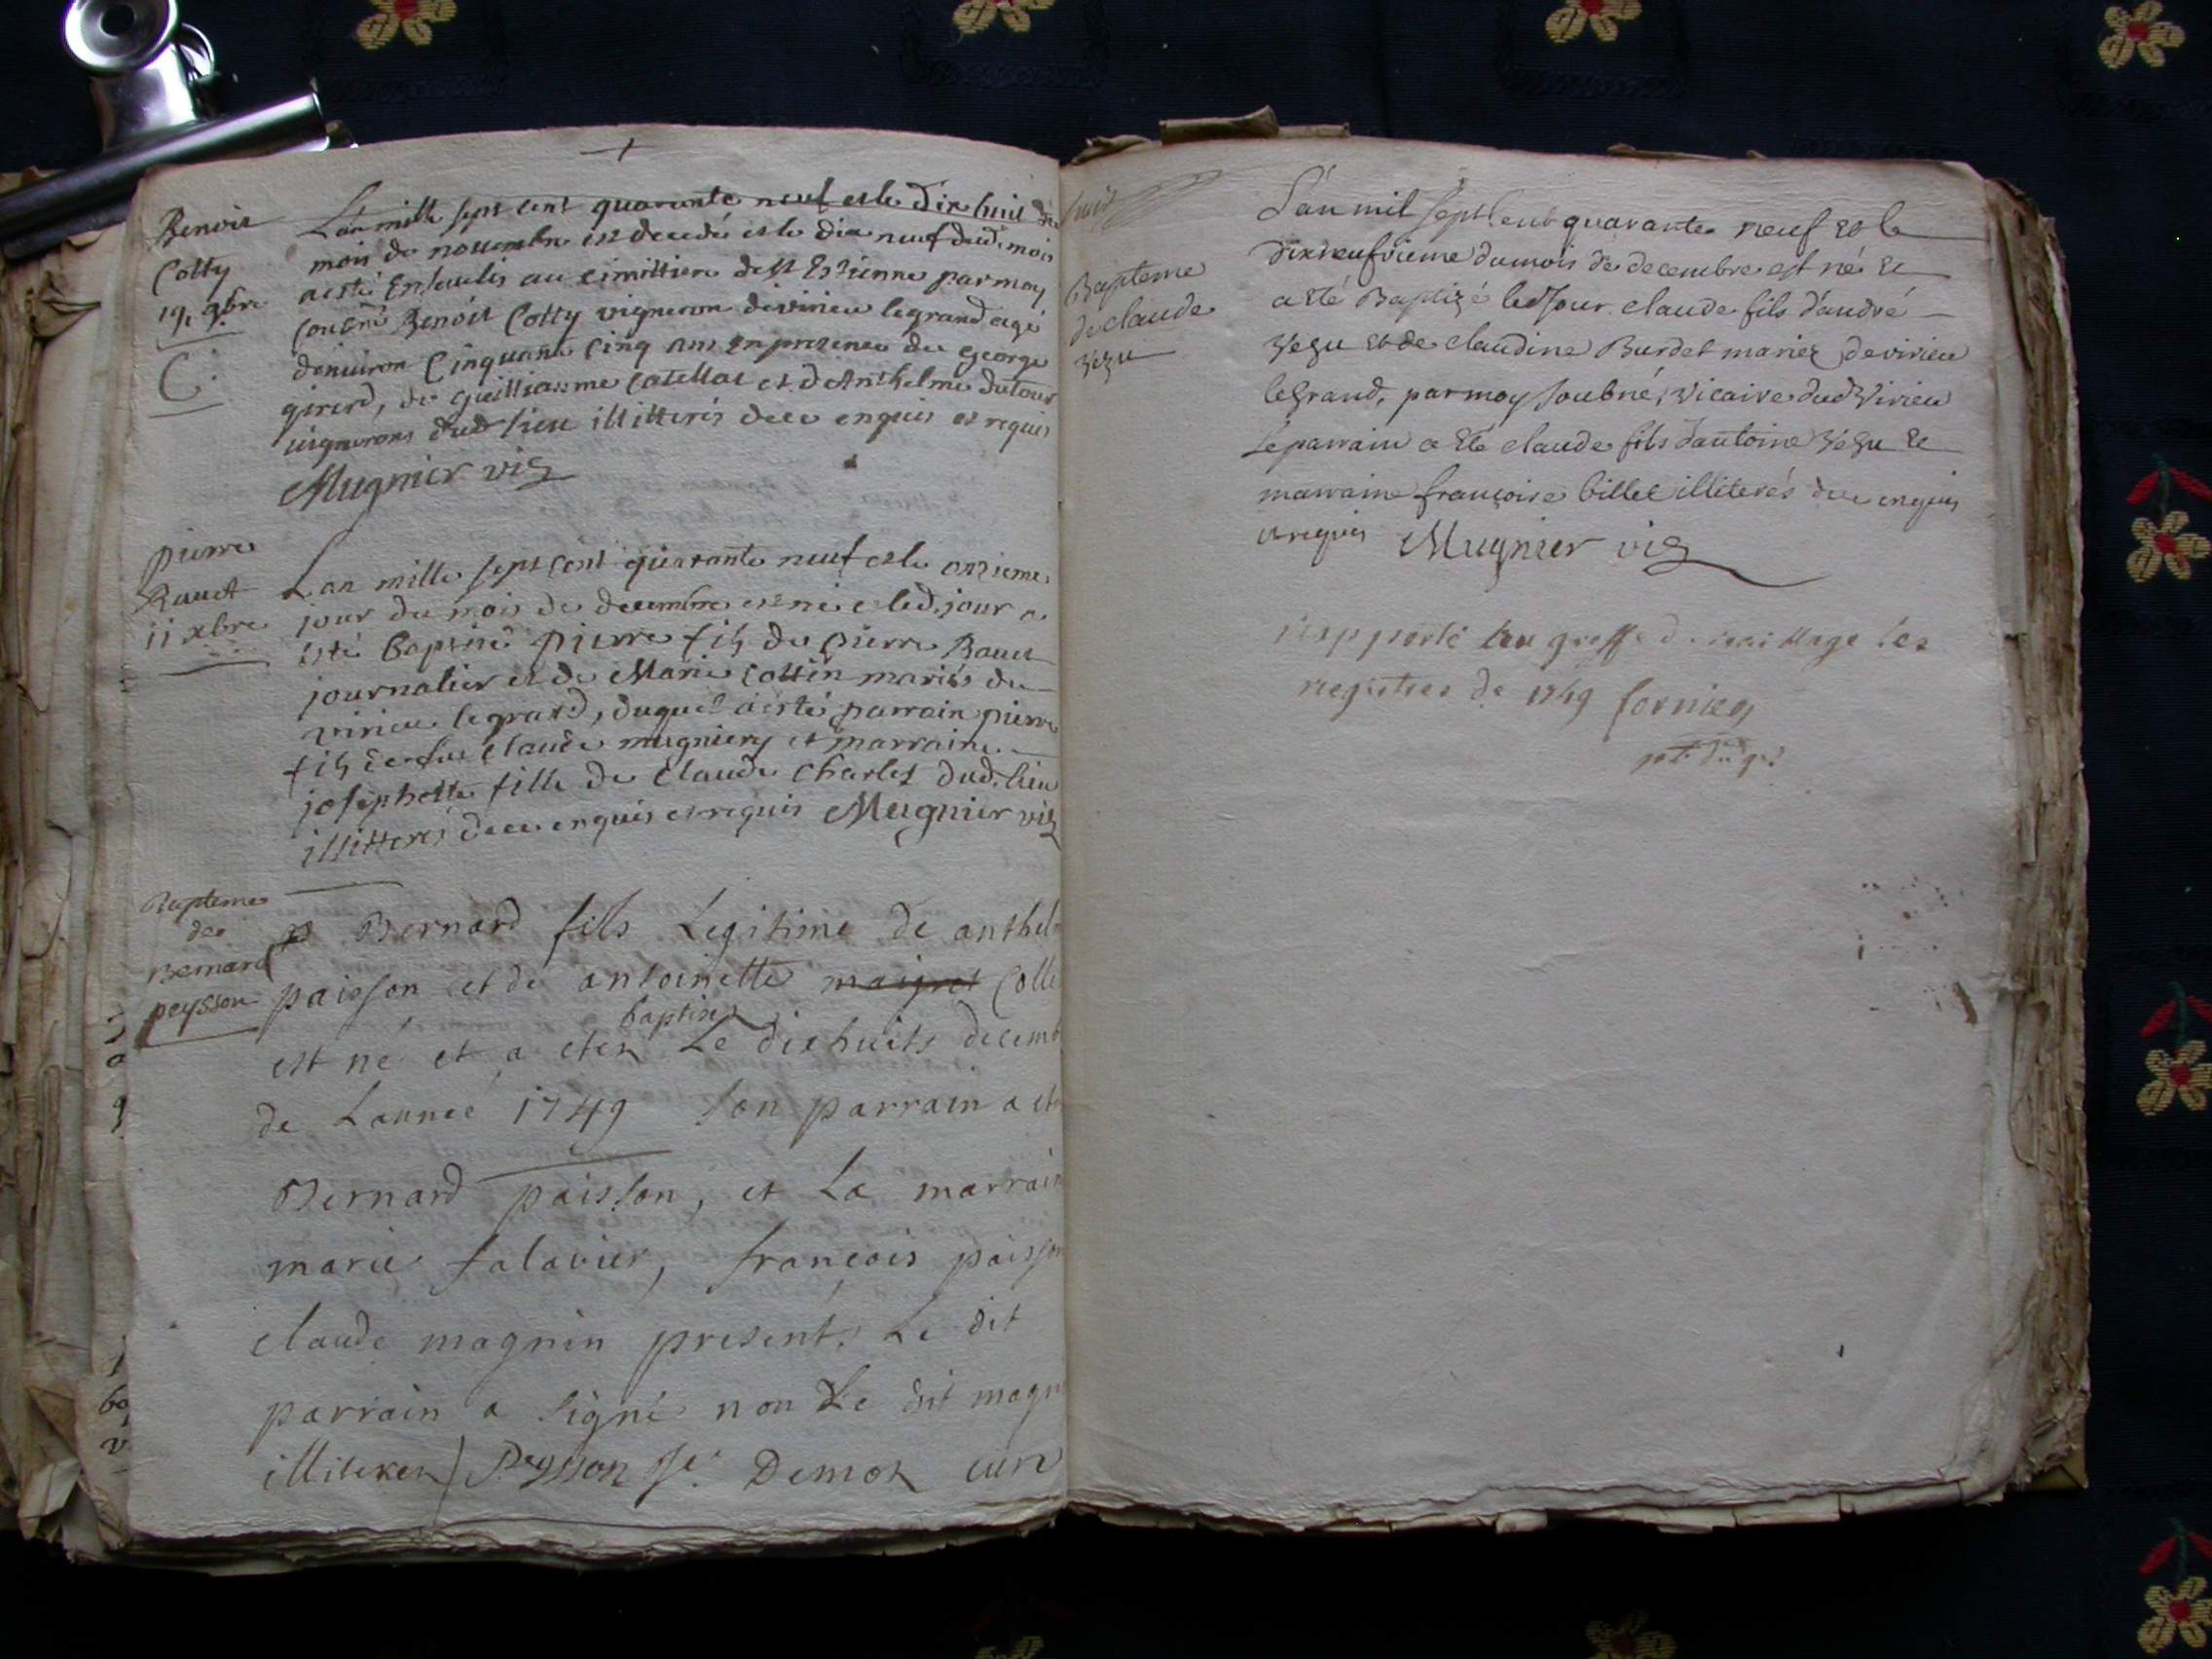 Benoit
Cotty
19. 9bre
C.
L'an mille sept cent quarante neuf et le dix huit du
mois de novembre est decedé et le dix neuf dud. mois
a esté Enseulis au cimittiere de St Estienne par moy
soubné Benoit Cotty vigneron de virieu le grand agé
d'environ Cinquante Cinq ans en presence de George
girerd, de Guilliaume Catellat et d'Anthelme dutour
vignerons dud lieu illitterés de ce enquis et requis
Mugnier vic
pierre
Rauet
11 xbre
L'an mille sept cent quarante neuf et le onzieme
jour du mois de decembre est né et led. jour a
esté baptisé pierre fils de pierre Rauet
journalier et de Marie Cottin mariés de
virieu le grand, duquel a esté parrain pierre
fils de feu Claude mugniery et marraine
josephette fille de Claude Charles dud. lieu
illitterés de ce enquis et requis Mugnier vic
Bapteme
de
Bernard
peysson
Bernard fils Legitime de anthel
paisson et de antoinette Colle
baptisez
est né et a etez Le dixhuits decemb
de Lannee 1749 son parrain a ete
Bernard paisson, et La marrain
marie falavier, françois paisson
claude magnin presents Le dit
parrain a signé non Le dit magn
illiterez Peysson Demoz curé
Bapteme
de claude
vezu
L'an mil sept cent quarante neuf et le
dixneufvieme du mois de decembre est né et
a été Baptizé led jour claude fils d'andré
vezu et de claudine Burdet mariez de virieu
le grand, par moy soubné, vicaire dud virieu
le parrain a été claude fils d'antoine vezu et
marraine françoise billet illiterés de ce enquis
et requis Mugnier vic
rapporté au greffe du bailliage les
registres de 1749 fornier